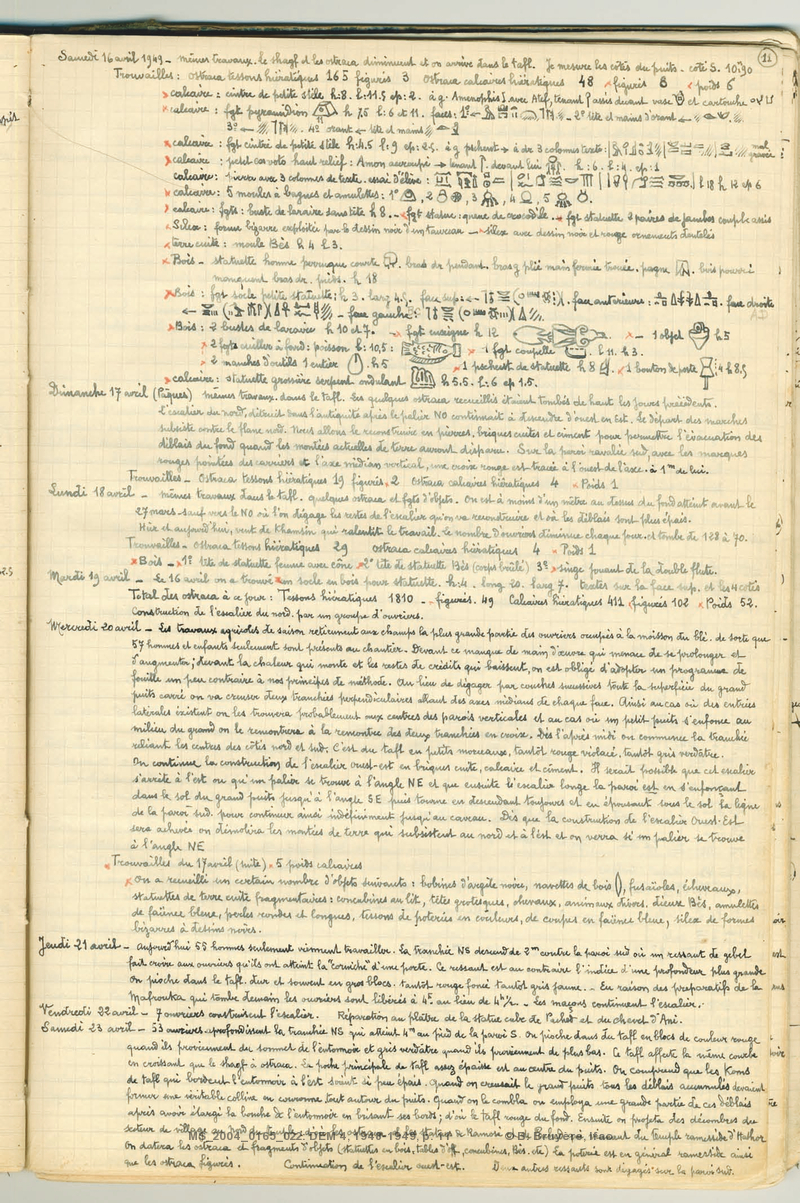 11
Samedi 16 avril 1949 - mêmes travaux. le shagf et les ostraca diminuent et on arrive dans le tafl. Je mesure les côtés du puits. côté S. 10,90
Trouvailles : ostraca tessons hiératiques 165 figurés 3 Ostraca calcaires hiératiques 48 figurés 8 poids 6
calcaire : cintre de petite stèle h:8. l:11.5 ep:2. à g. Aménophis I avec Atef, tenant assis devant vase et cartouche
calcaire : fgt pyramidion h 7.5 l:6 et 11. faces: 1° 2° tête et mains d'orant
3° 4° orant tête et mains
calcaire : fgt cintré de petite stèle h:4.5 l:9 ep:2.5. à g. pschent à dr 3 colonnes texte: mal gravé
calcaire : petit ex voto haut relief : Amon accroupi tenant devant lui h:6. l:4. ep:1
calcaire : pierre avec 3 colonnes de texte. essai d'élève : l 18 h 12 ep 6
calcaire : 5 moules à bagues et amulettes : 1° , 2 , 3 , 4 , 5
calcaire : fgts : buste de laraire sans tête h 8. - fgt statue : queue de crocodile. fgt statuette 2 paires de jambes couple assis
Silex : forme bizarre exploitée par le dessin noir d'un taureau - silex avec dessin noir et rouge ornements dentelés
terre cuite : moule Bès h 4 l 3.
Bois - statuette homme perruque courte . bras dr pendant. bras g plié main fermée trouée. pagne . bois pourri
manquent bras dr. pieds. h 18
Bois : fgt socle petite statuette ; h 3. larg 4.5. face sup: face antérieure : face droite
face gauche :
Bois : 2 bustes de laraire h 10 et 7. - fgt enseigne h 12 - 1 objet h 5
2 fgts cuiller à fard : poisson l: 10,5 : 1 fgt coupelle l. 11. h 3.
2 manches d'outils 1 entier h 5 1 pschent de statuette h 8 1 bouton de porte 4 h 8.5
calcaire : statuette grossière serpent ondulant h 5.5. l:6 ep 1.5.
Dimanche 17 avril (Pâques) mêmes travaux. dans le tafl. Les quelques ostraca recueillis étaient tombés de haut les jours précédents.
L'escalier du nord, détruit dans l'antiquité après le palier NO continuait à descendre d'ouest en Est. Le départ des marches
subsiste contre le flanc nord. Nous allons le reconstruire en pierres, briques cuites et ciment pour permettre l'évacuation des
déblais du fond quand les montées actuelles de terre auront disparu. Sur la paroi ravalée sud, avec les marques
rouges pointées des carriers et l'axe médian vertical, une croix rouge est tracée à l'ouest de l'axe. à 1m de lui.
Trouvailles - Ostraca tessons hiératiques 19 figurés 2 Ostraca calcaires hiératiques 4 Poids 1
Lundi 18 avril - mêmes travaux dans le tafl. quelques ostraca et fgts d'objets. On est à moins d'un mètre au dessus du fond atteint avant le
27 mars. sauf vers le NO où l'on dégage les restes de l'escalier qu'on va reconstruire et où les déblais sont plus épais.
Hier et aujourd'hui, vent de Khamsin qui ralentit le travail. Le nombre d'ouvriers diminue chaque jour et tombe de 128 à 70.
Trouvailles - Ostraca tessons hiératiques 29 ostraca calcaires hiératiques 4 Poids 1
Bois - 1° tête de statuette femme avec cône 2° tête de statuette Bès (corps brûlé) 3° singe jouant de la double flûte.
Mardi 19 avril - Le 16 avril on a trouvé un socle en bois pour statuette. h:4. long 20. larg 7. textes sur la face sup. et les 4 côtés
Total des ostraca à ce jour : Tessons hiératiques 1810 - figurés. 49 Calcaires hiératiques 411 figurés 102 Poids 52.
Construction de l'escalier du nord. par un groupe d'ouvriers.
Mercredi 20 avril - Les travaux agricoles de saison retiennent aux champs la plus grande partie des ouvriers occupés à la moisson du blé. de sorte que
57 hommes et enfants seulement sont présents au chantier. Devant ce manque de main d'œuvre qui menace de se prolonger et
d'augmenter ; devant la chaleur qui monte et les restes de crédits qui baissent, on est obligé d'adopter un programme de
fouille un peu contraire à nos principes de méthode. Au lieu de dégager par couches successives toute la superficie du grand
puits carré on va creuser deux tranchées perpendiculaires allant des axes médians de chaque face. Ainsi au cas où des entrées
latérales existent on les trouvera probablement aux centres des parois verticales et au cas où un petit puits s'enfonce au
milieu du grand on le rencontrera à la rencontre des deux tranchées en croix. Dès l'après midi on commence la tranchée
reliant les centres des côtés nord et sud. C'est du tafl en petits morceaux, tantôt rouge violacé, tantôt gris verdâtre.
On continue la construction de l'escalier ouest-est en briques cuite, calcaire et ciment. Il serait possible que cet escalier
s'arrête à l'est ou qu'un palier se trouve à l'angle NE et que ensuite l'escalier longe la paroi est en s'enfonçant
dans le sol du grand puits jusqu'à l'angle SE puis tourne en descendant toujours et en épousant sous le sol la ligne
de la paroi sud. pour continuer ainsi indéfiniment jusqu'au caveau. Dès que la construction de l'escalier Ouest-Est
sera achevée on démolira les montées de terre qui subsistent au nord et à l'est et on verra si un palier se trouve
à l'angle NE
Trouvailles du 17 avril (suite) 5 poids calcaires
On a recueilli un certain nombre d'objets suivants : bobines d'argile noire, navettes de bois , fusaïoles, écheveaux,
statuettes de terre cuite fragmentaires : concubines au lit, têtes grotesques, chevaux, animaux divers. dieux Bès, amulettes
de faïence bleue, perles rondes et longues, tessons de poteries en couleurs, de coupes en faïence bleue, silex de formes
bizarres à dessins noirs.
Jeudi 21 avril - aujourd'hui 55 hommes seulement viennent travailler. la tranchée NS descend de 2m contre la paroi sud où un ressaut de gebel
fait croire aux ouvriers qu'ils ont atteint la "corniche" d'une porte. Ce ressaut est au contraire l'indice d'une profondeur plus grande
On pioche dans le tafl. dur et souvent en gros blocs. tantôt rouge foncé tantôt gris jaune. - En raison des préparatifs de la
Mafrouka qui tombe demain les ouvriers sont libérés à 4h. au lieu de 4h1/2. - Les maçons continuent l'escalier.
Vendredi 22 avril - 7 ouvriers construisent l'escalier. Réparation au plâtre de la statue cube de Pached et du chevet d'Ani.
Samedi 23 avril - 53 ouvriers approfondissent la tranchée NS qui atteint 4m au pied de la paroi S. On pioche dans du tafl en blocs de couleur rouge
quand ils proviennent du sommet de l'entonnoir et gris verdâtre quand ils proviennent de plus bas. Ce tafl affecte la même courbe
en croissant que le shagf à ostraca. La poche principale de tafl assez épaisse est au centre du puits. On comprend que les Koms
de tafl qui bordent l'entonnoir à l'est soient si peu épais. Quand on creusait le grand puits tous les déblais accumulés devaient
former une véritable colline en couronne tout autour du puits. Quand on le combla on employa une grande partie de ces déblais
après avoir élargi la bouche de l'entonnoir en brisant ses bords ; d'où le tafl rouge du fond. Ensuite on projeta des décombres du
secteur de village du temple ramesside d'Hathor
on datera les ostraca et fragments d'objets (statuettes en bois, tables d'off, concubines, Bès. etc) La poterie est en général ramesside ainsi
que les ostraca figurés. Continuation de l'escalier ouest-est. Deux autres ressauts sont dégagés sur la paroi sud.